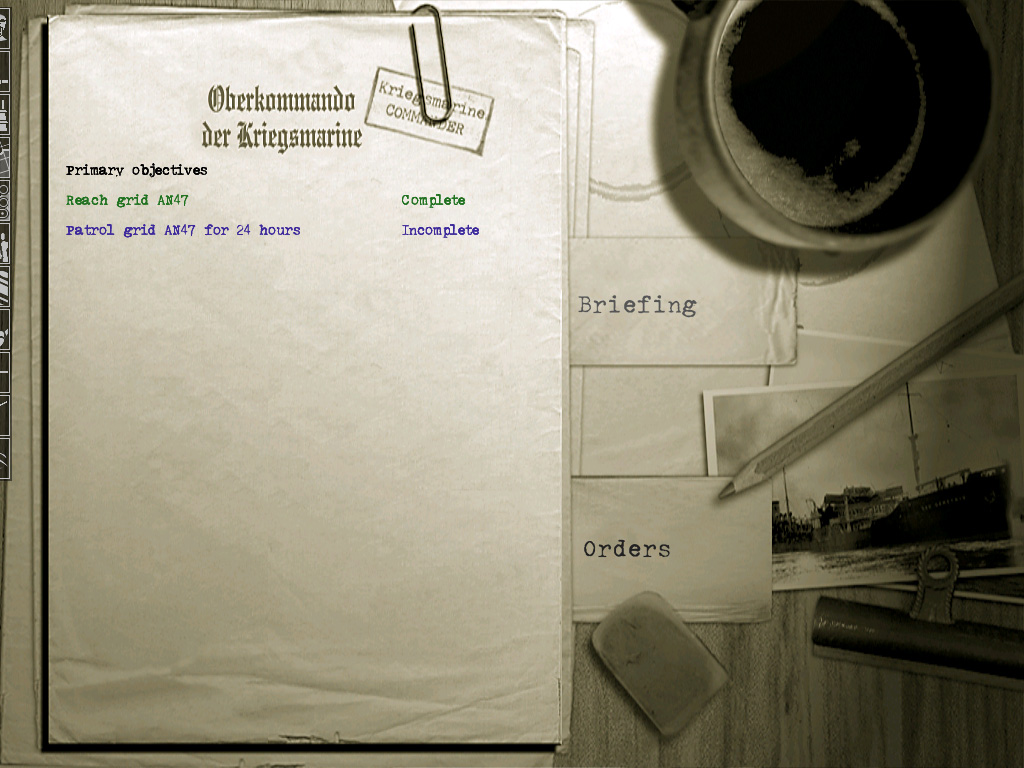 Oberkommando
der Kriegsmarine
Kriegsmarine
COMMANDER
Primary objectives
Reach grid AN47 Complete
Patrol grid AN47 for 24 hours Incomplete
Briefing
Orders